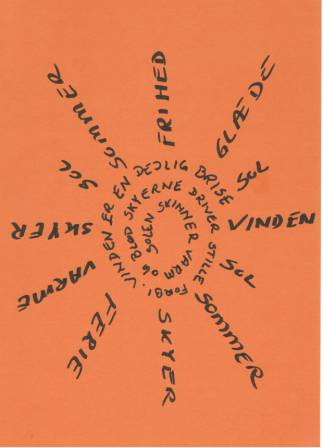 FRIHED
GLÆDE
SOL
VINDEN
SOL
SOMMER
SKYER
FERIE
VARME
SKYER
SOL
SOMMER
SOLEN SKINNER VARM OG BLØD SKYERNE DRIVER STILLE FORBI. VINDEN ER EN DEJLIG BRISE